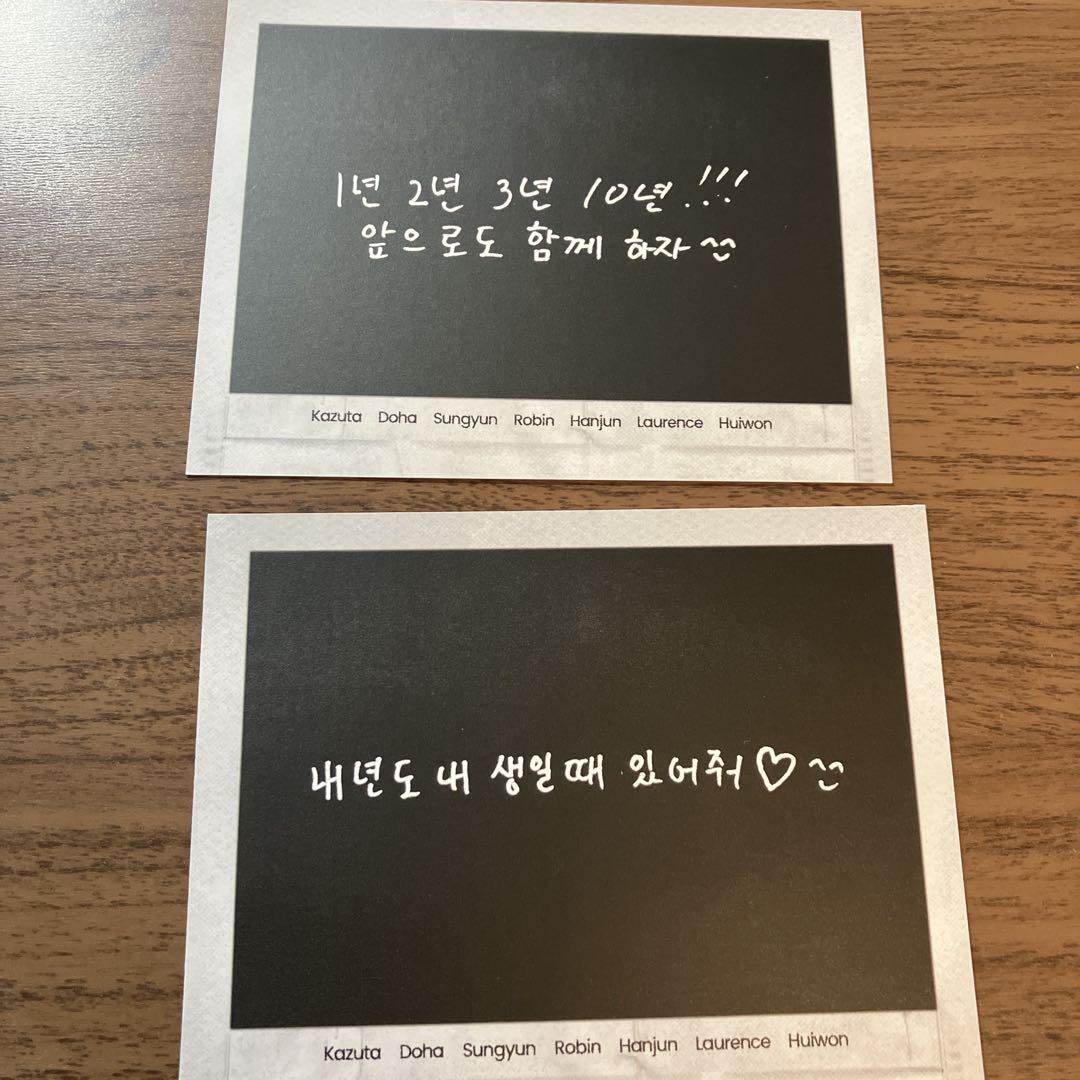 1년 2년 3년 10년!!!
앞으로도 함께 하자 ^^
Kazuta Doha Sungyun Robin Hanjun Laurence Huiwon
내년도 내 생일때 있어줘 ♡ ^^
Kazuta Doha Sungyun Robin Hanjun Laurence Huiwon